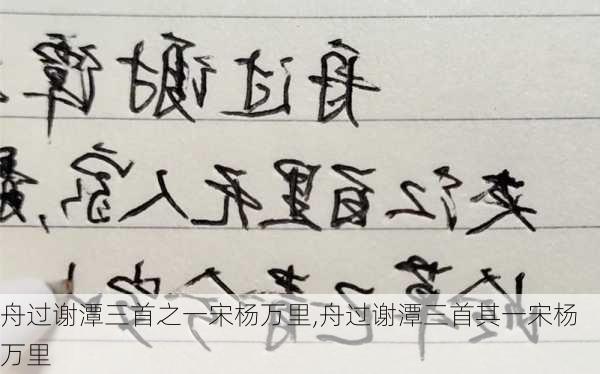 舟过谢潭
夹江百里无人家,最
舟过谢潭三首之一宋杨万里,舟过谢潭三首其一宋杨
万里